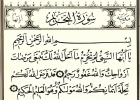 سورة التحريم
بسم الله الرحمن الرحيم
يا أيها النبي لم تحرم ما أحل الله لك تبتغي مرضات
أزواجك والله غفور رحيم قد فرض الله لكم
تحلة أيمانكم والله مولاكم وهو العليم الحكيم